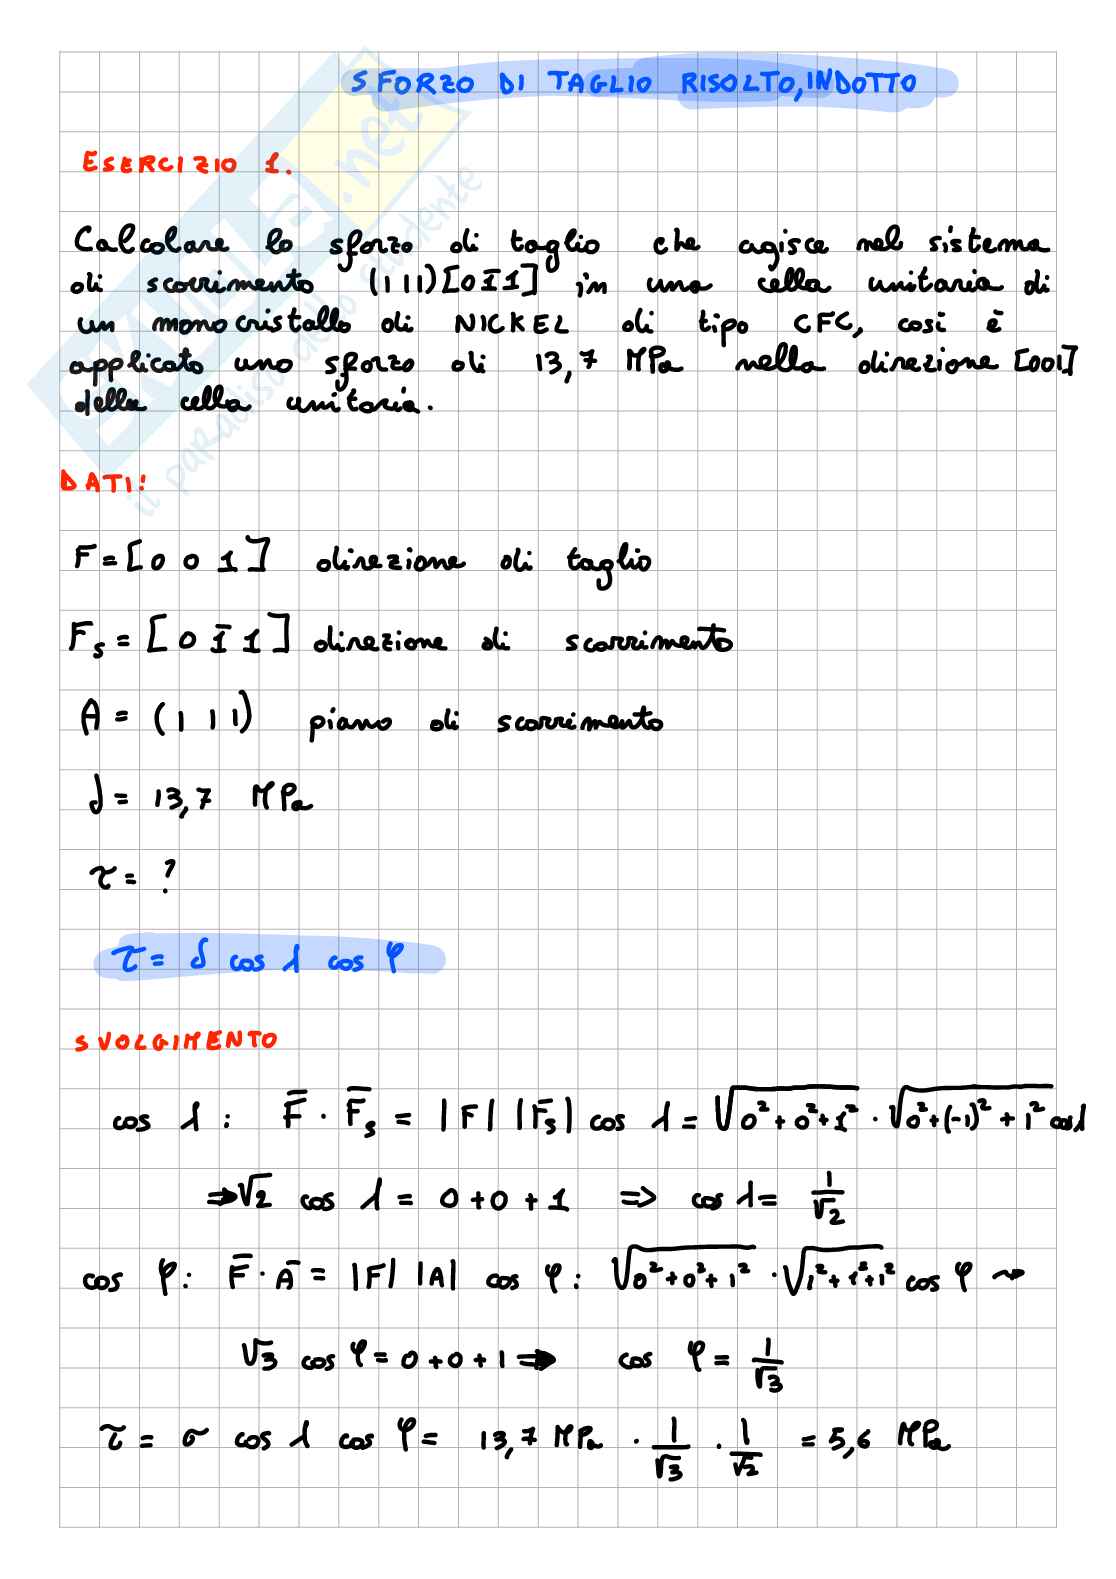 SFORZO DI TAGLIO RISOLTO, INDOTTO
ESERCIZIO 1.
Calcolare lo sforzo di taglio che agisce nel sistema
di scorrimento (111)[0 1̅ 1] in una cella unitaria di
un monocristallo di NICKEL di tipo CFC, così è
applicato uno sforzo di 13,7 MPa nella direzione [001]
della cella unitaria.
DATI:
F = [0 0 1] direzione di taglio
Fs = [0 1̅ 1] direzione di scorrimento
A = (1 1 1) piano di scorrimento
δ = 13,7 MPa
τ = ?
τ = δ cos λ cos φ
SVOLGIMENTO
cos λ : F̅ · F̅s = |F| |F̅s| cos λ = √(0² + 0² + 1²) · √(0² + (-1)² + 1²) cos λ
⇒ √2 cos λ = 0 + 0 + 1 ⇒ cos λ = 1/√2
cos φ : F̅ · A̅ = |F| |A| cos φ : √(0² + 0² + 1²) · √(1² + 1² + 1²) cos φ ⇝
√3 cos φ = 0 + 0 + 1 ⇒ cos φ = 1/√3
τ = σ cos λ cos φ = 13,7 MPa · 1/√3 · 1/√2 = 5,6 MPa
SKUOLA.net
il paradiso dello studente